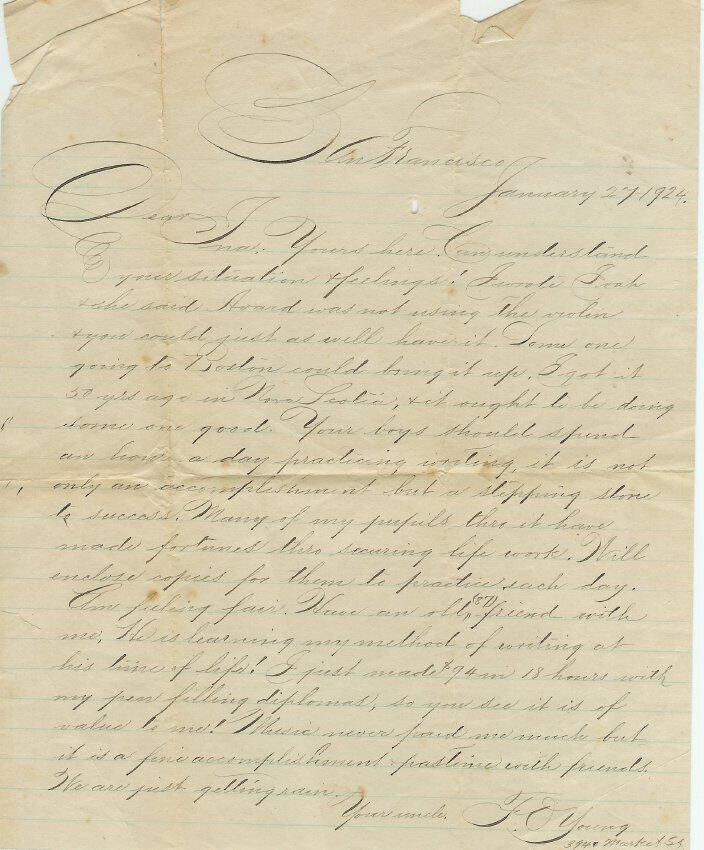 San Francisco
January 27-1924.
Dear Ina. Yours here. Can understand
your situation & feelings! I wrote
& she said Avard was not using the violin
& you could just as well have it. Some one
going to Boston could bring it up. I got it
50 yrs ago in Nova Scotia, & it ought to be doing
some one good. Your boys should spend
an hour a day practicing writing, it is not
only an accomplishment but a stepping stone
to success. Many of my pupils thro it have
made fortunes thro securing life work. Will
enclose copies for them to practice each day.
Am feeling fair. Have an old (87) friend with
me. He is learning my method of writing at
his time of life! I just made $94 in 18 hours with
my pen filling diplomas, so you see it is of
value to me! Music never paid me much but
it is a fine accomplishment & pastime with friends.
We are just getting rain.
Your uncle, F. E. Young
Market St